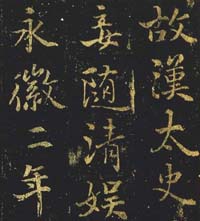 故漢太史
妾隨清娛
永徽二年